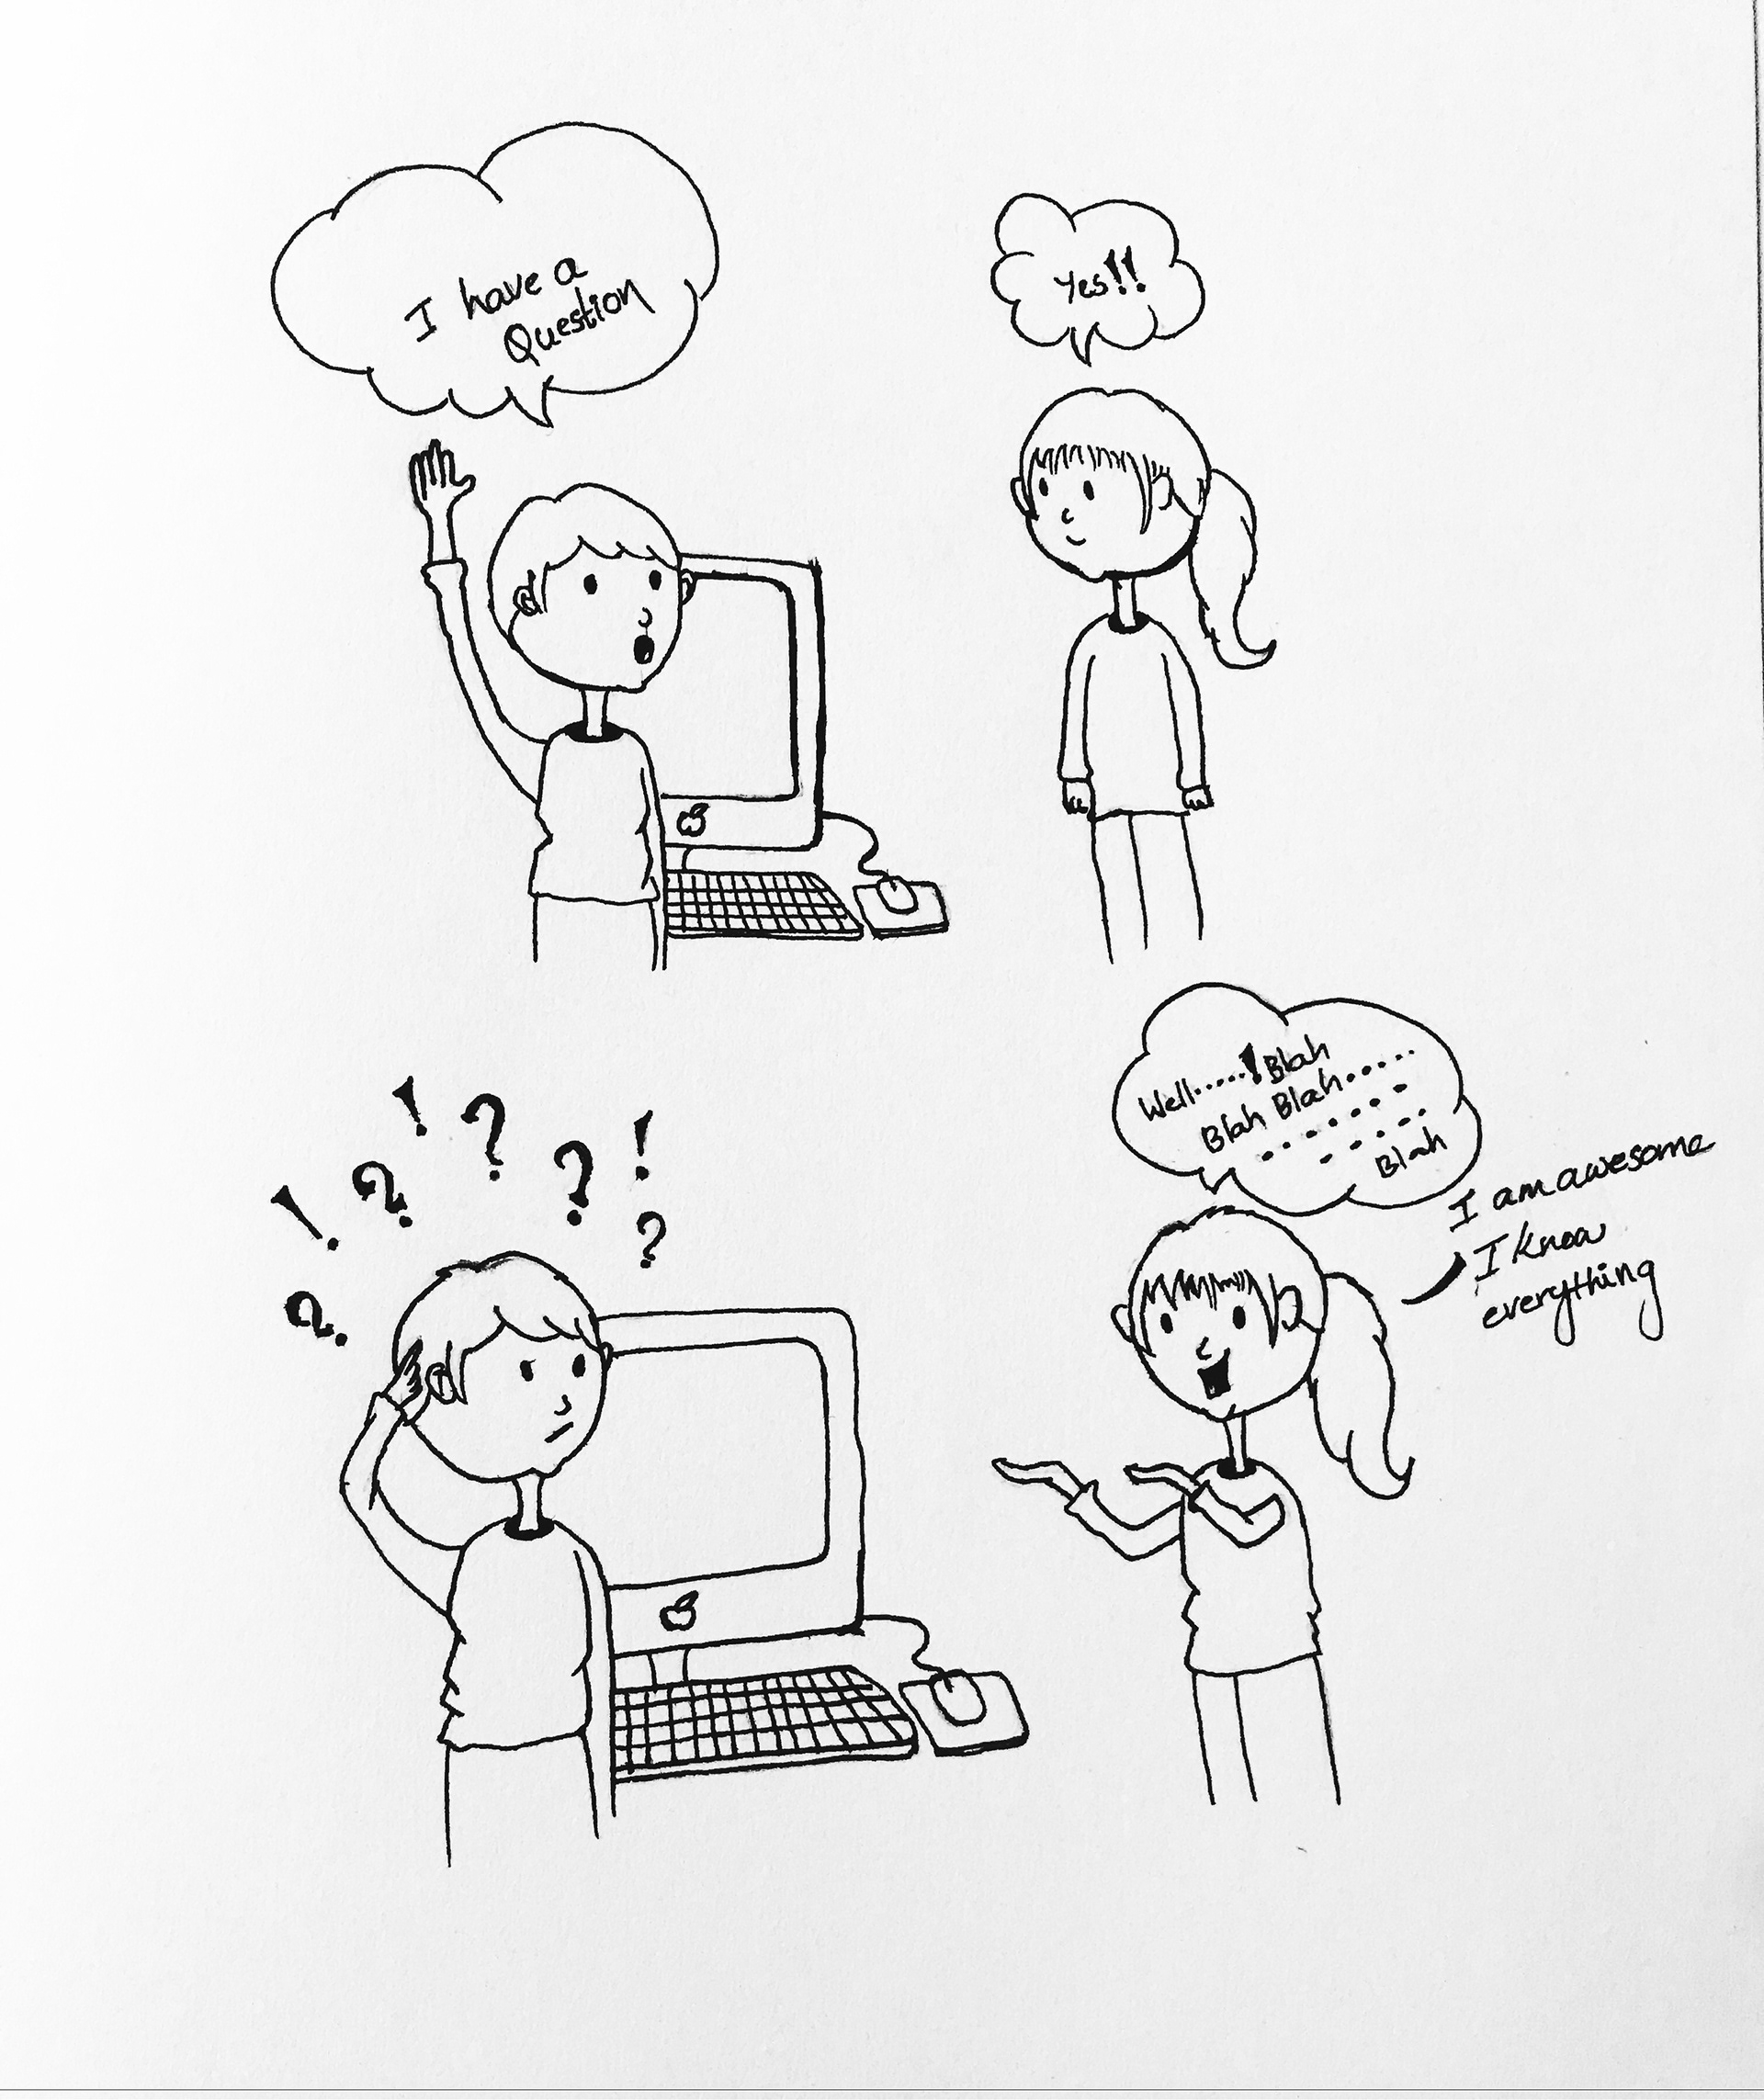 I have a
Question
Yes!!
! ? ! ? ? ! ? ?
Well......! Blah
Blah Blah......
Blah
I am awesome
I know
everything